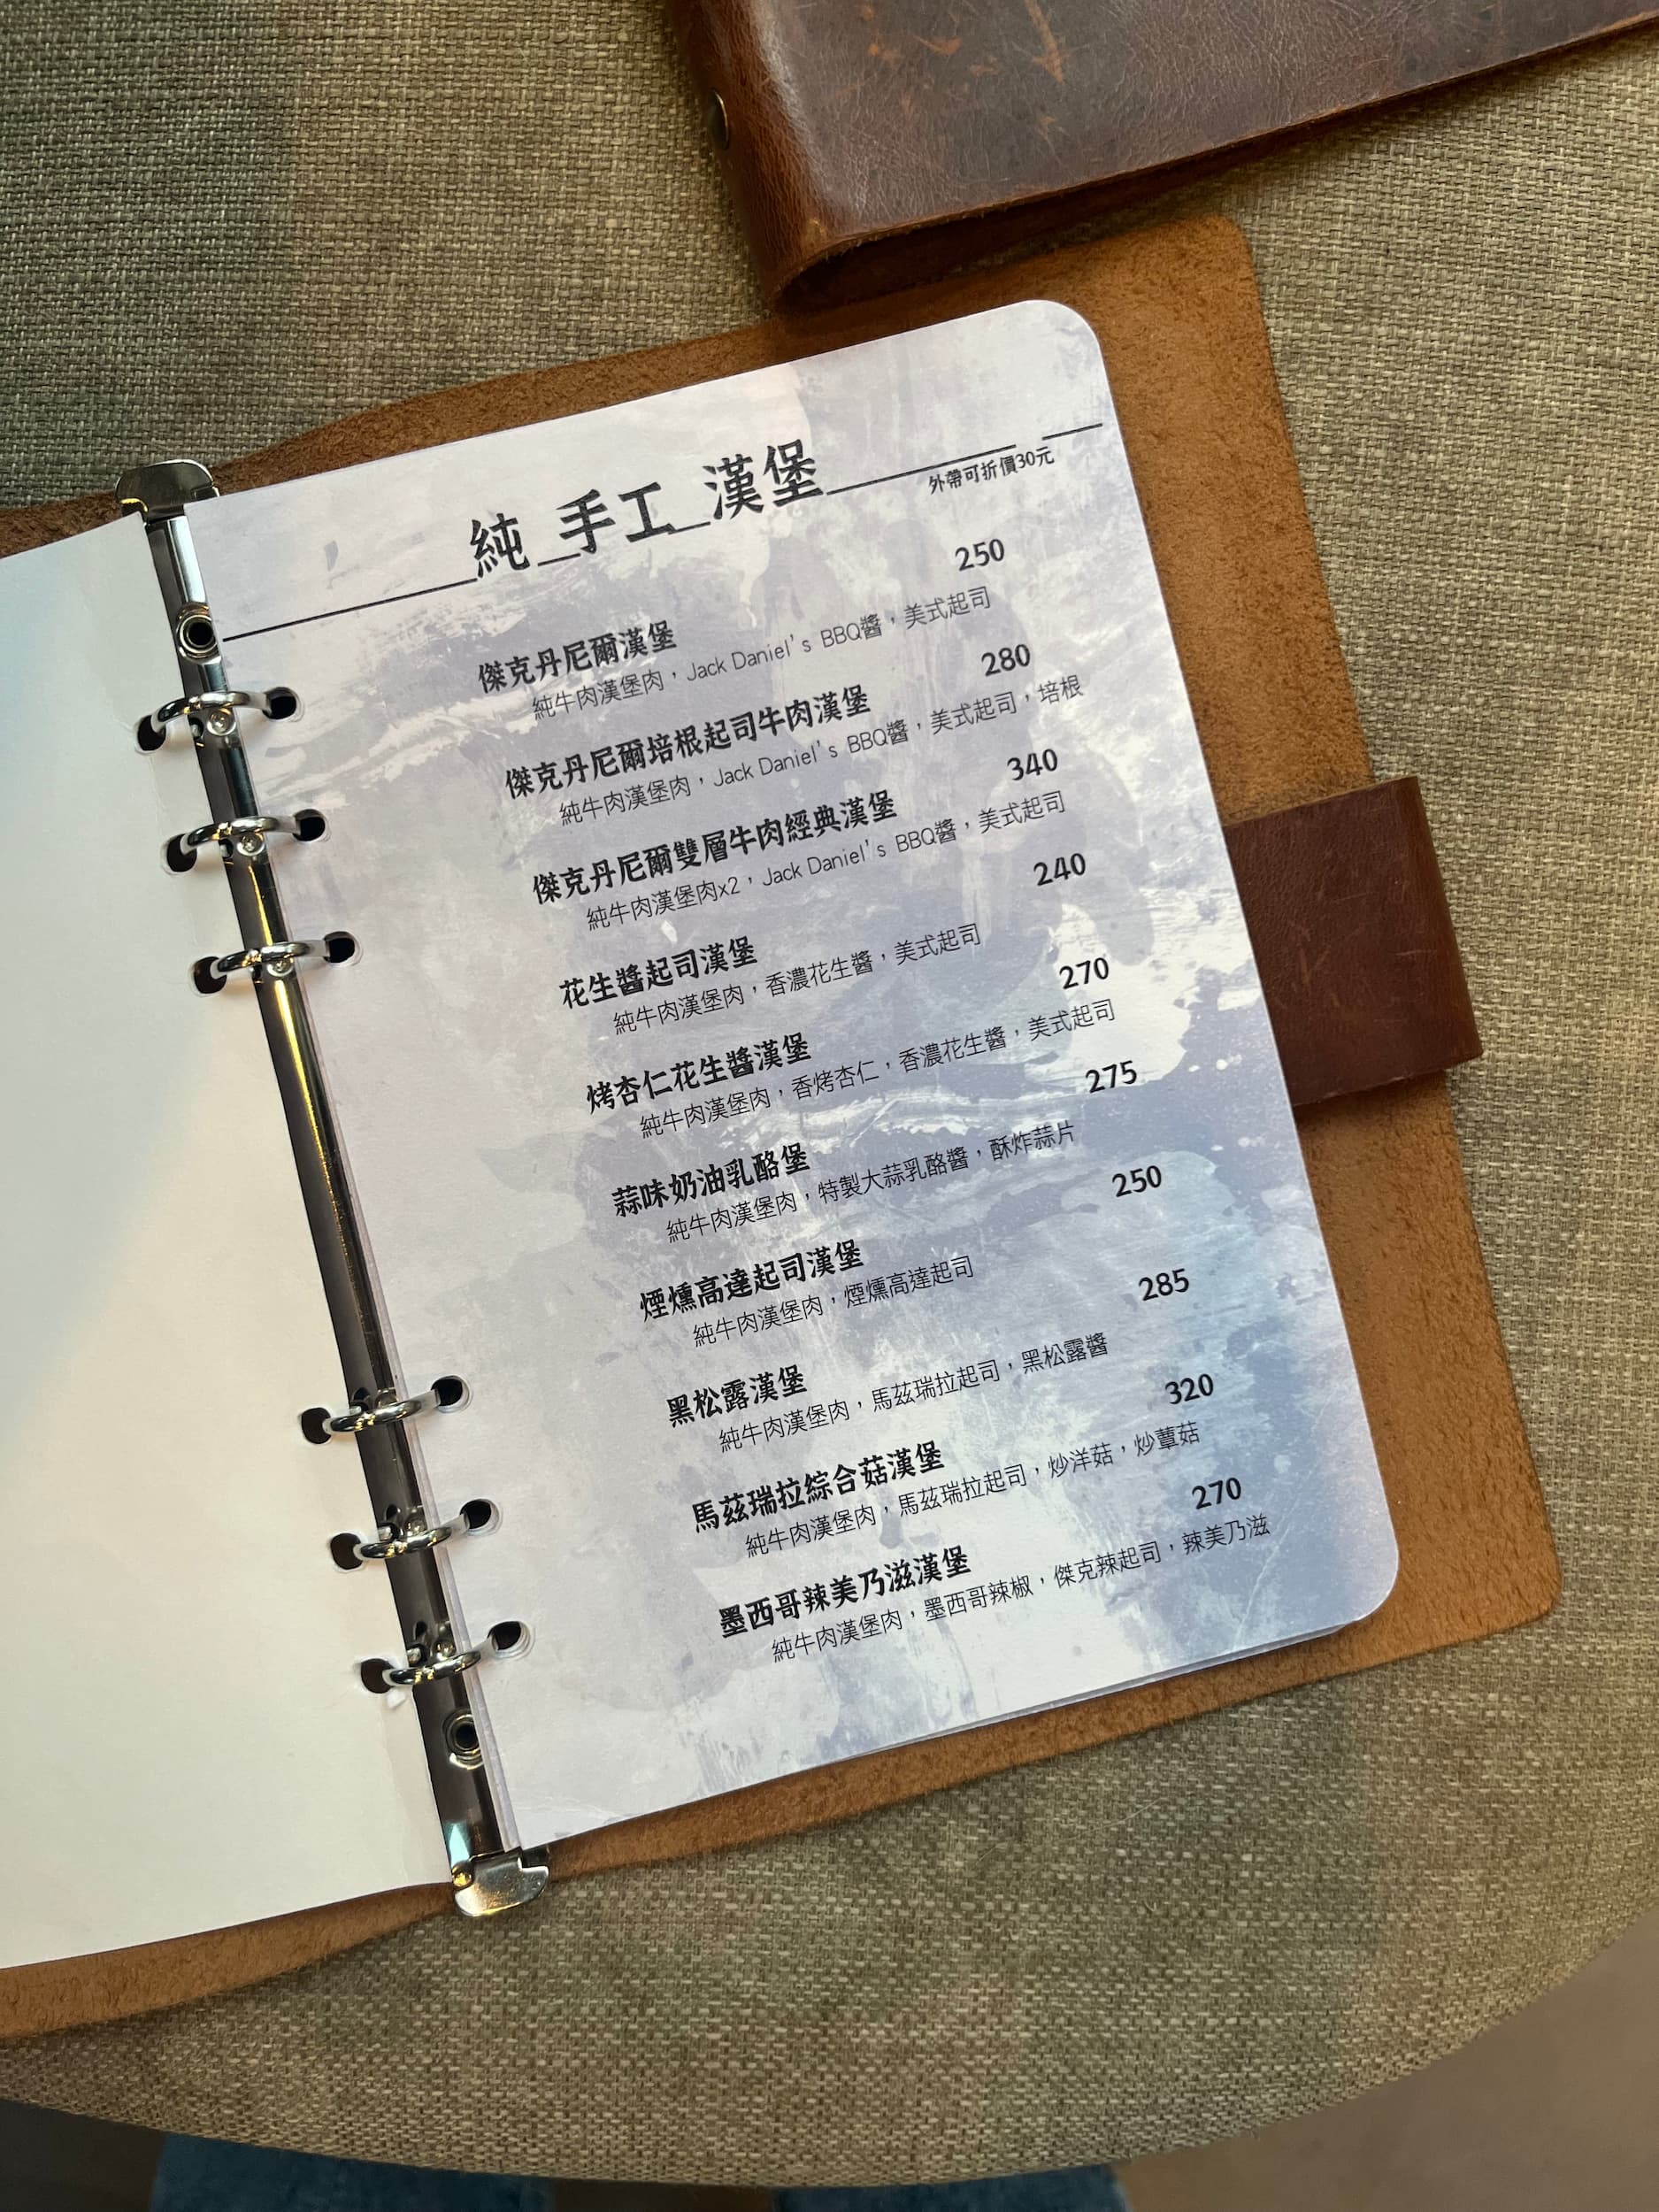 純 手工 漢堡
外帶可折價30元
傑克丹尼爾漢堡 250
純牛肉漢堡肉，Jack Daniel's BBQ醬，美式起司
傑克丹尼爾培根起司牛肉漢堡 280
純牛肉漢堡肉，Jack Daniel's BBQ醬，美式起司，培根
傑克丹尼爾雙層牛肉經典漢堡 340
純牛肉漢堡肉x2，Jack Daniel's BBQ醬，美式起司
花生醬起司漢堡 240
純牛肉漢堡肉，香濃花生醬，美式起司
烤杏仁花生醬漢堡 270
純牛肉漢堡肉，香烤杏仁，香濃花生醬，美式起司
蒜味奶油乳酪堡 275
純牛肉漢堡肉，特製大蒜乳酪醬，酥炸蒜片
煙燻高達起司漢堡 250
純牛肉漢堡肉，煙燻高達起司
黑松露漢堡 285
純牛肉漢堡肉，馬茲瑞拉起司，黑松露醬
馬茲瑞拉綜合菇漢堡 320
純牛肉漢堡肉，馬茲瑞拉起司，炒洋菇，炒蕈菇
墨西哥辣美乃滋漢堡 270
純牛肉漢堡肉，墨西哥辣椒，傑克辣起司，辣美乃滋